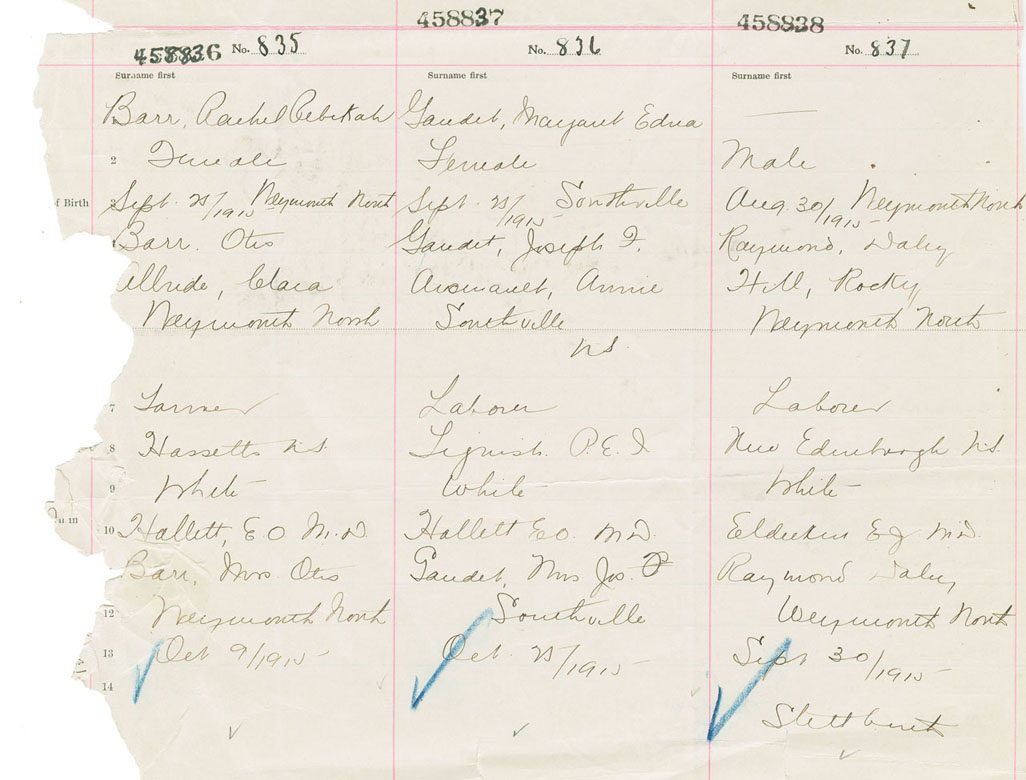 458836 No. 835
Surname first
1 Barr, Rachel Rebekah
2 Female
f Birth 3 Sept. 25/1915 Weymouth North
4 Barr. Otis
Allride, Clara
Weymouth North
7 Farmer
8 Hassetts N.S.
9 White
u in
10 Hallett, E O M.D.
Barr, Mrs Otis
12 Weymouth North
13 Oct 9/1915
14
458837
No. 836
Surname first
Gaudet, Margaret Edna
Female
Sept. 25/1915 Southville
Gaudet, Joseph F.
Arsenault, Annie
Southville
N.S.
Laborer
Tignish. P.E.I
White
Hallett E O. M.D.
Gaudet, Mrs Jos. F
Southville
Oct. 25/1915
458838
No. 837
Surname first
—
Male
Aug. 30/1915 Weymouth North
Raymond, Daley
Hill, Rocky
Weymouth North
Laborer
New Edinburgh N.S.
White
E J M.D.
Raymond Daley
Weymouth North
Sept 30/1915